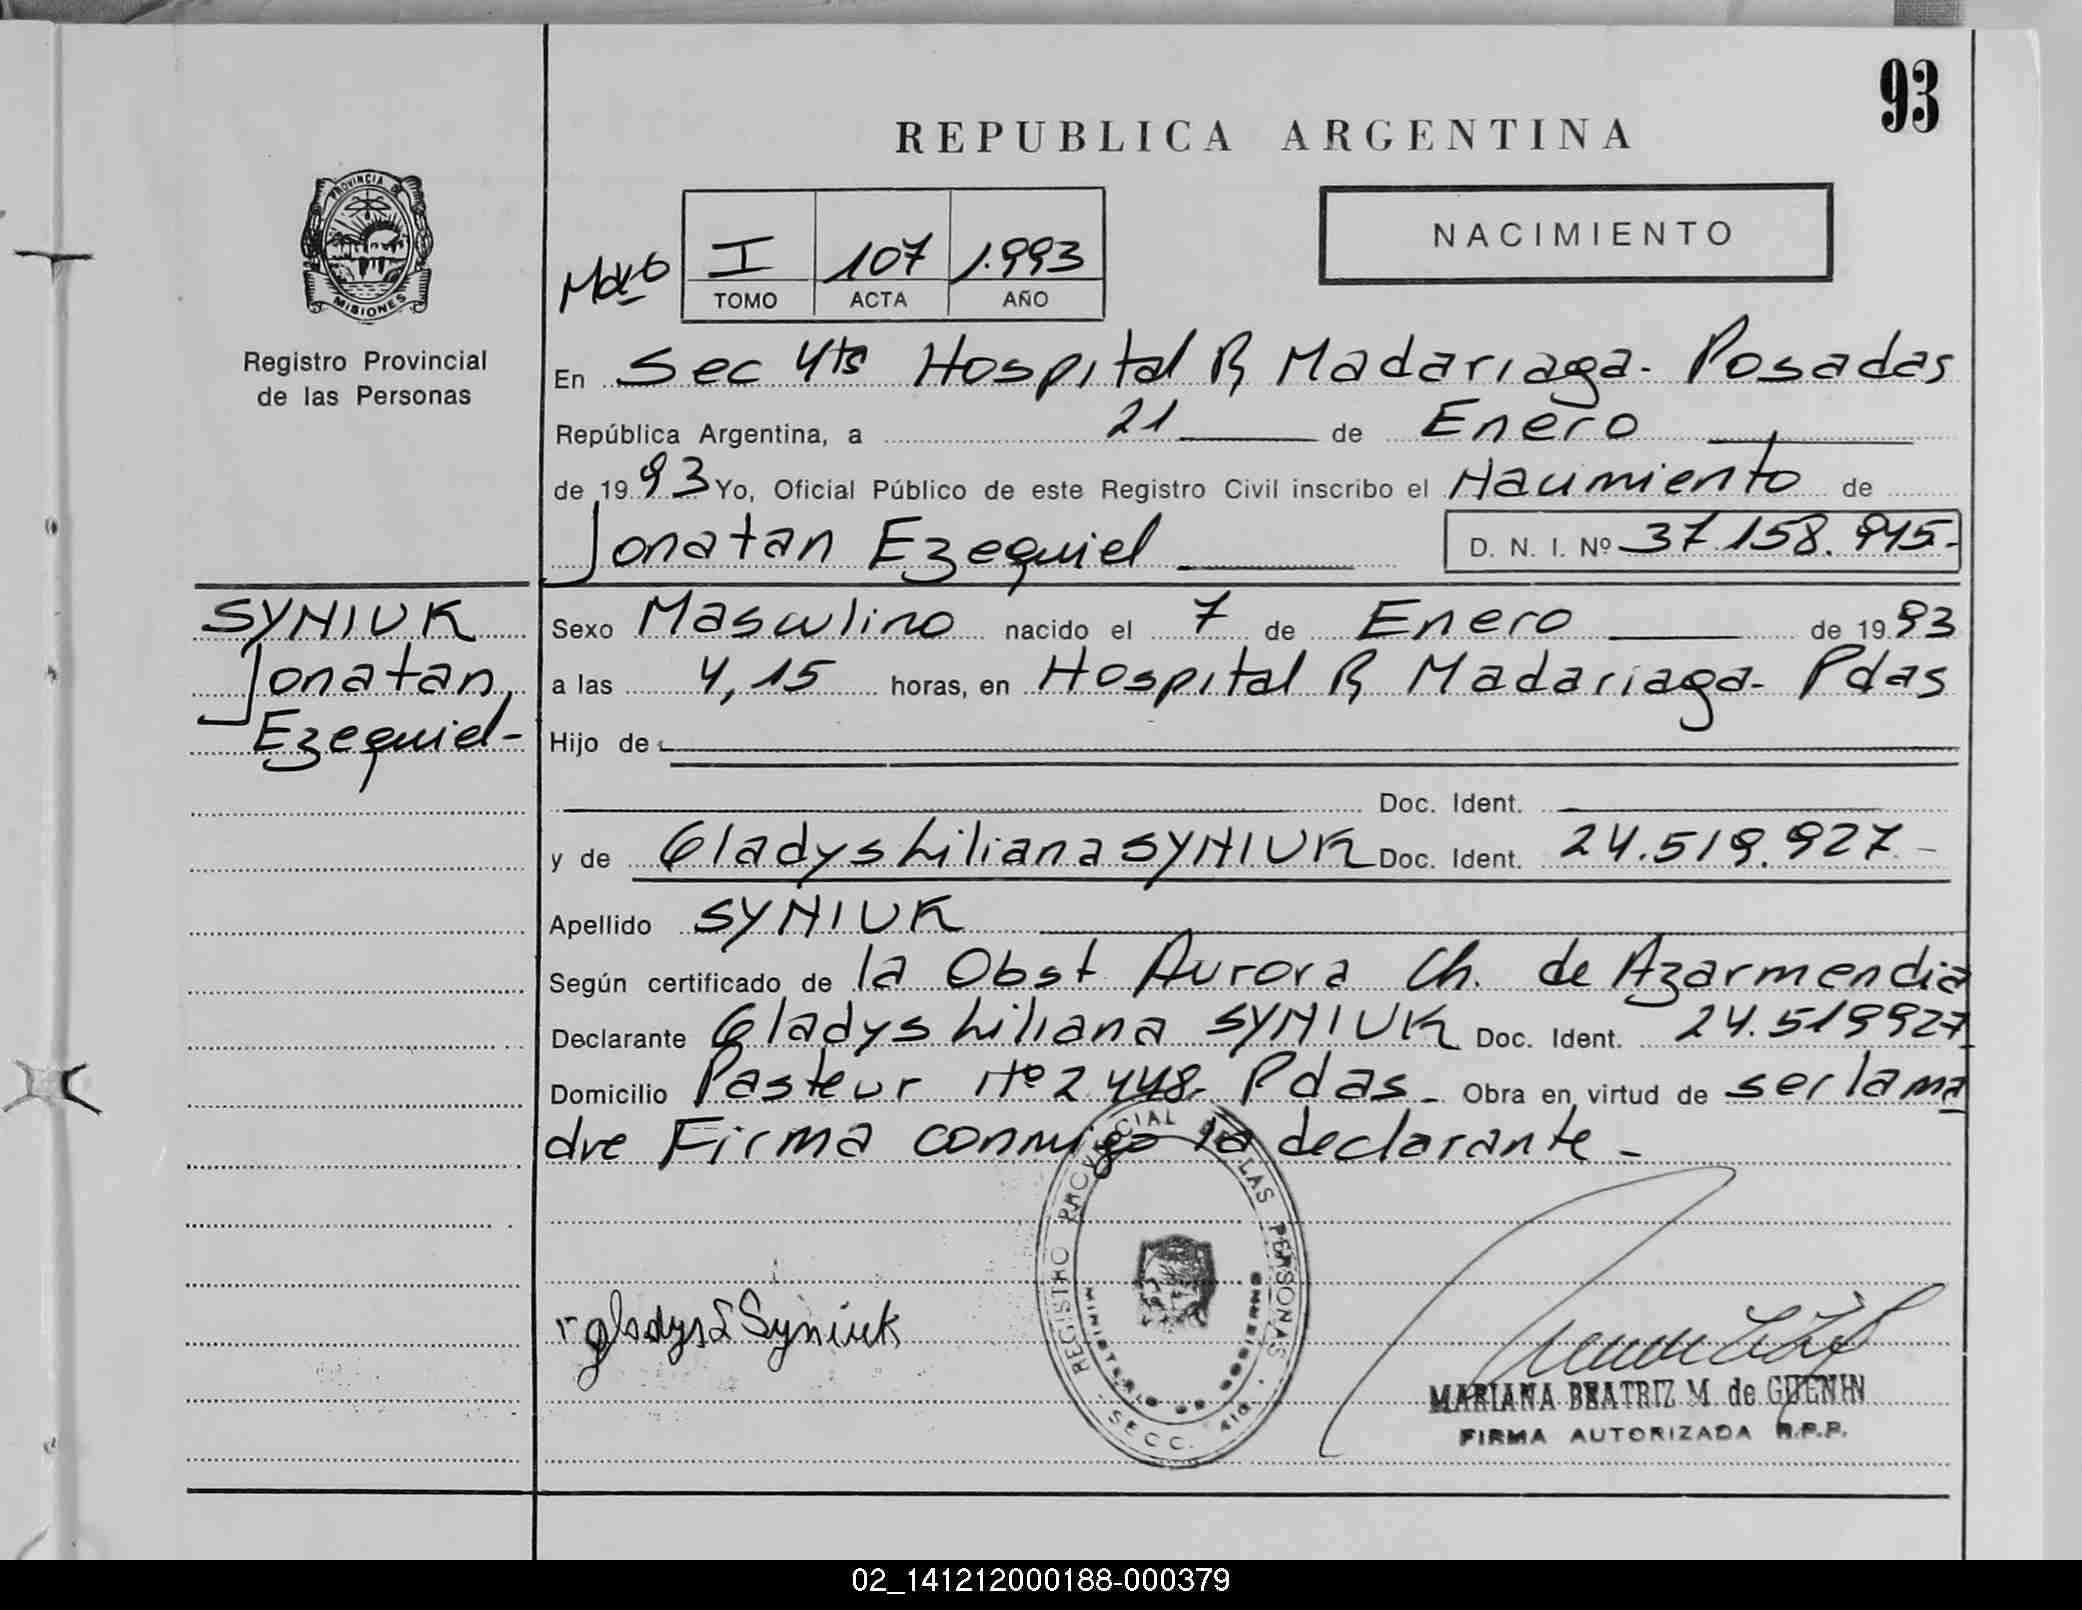 93
REPUBLICA ARGENTINA
PROVINCIA DE
MISIONES
Registro Provincial
de las Personas
NACIMIENTO
I 107 1.993
TOMO ACTA AÑO
En Sec 4ta Hospital R Madariaga - Posadas
República Argentina, a 21 de Enero
de 1993 Yo, Oficial Público de este Registro Civil inscribo el Nacimiento de
Jonatan Ezequiel D. N. I. Nº 37.158.945.-
SYNIUK
Jonatan
Ezequiel-
Sexo Masculino nacido el 7 de Enero de 1993
a las 4,15 horas, en Hospital R Madariaga - Pdas
Hijo de
Doc. Ident.
y de Gladys Liliana SYNIUK Doc. Ident. 24.519.927.-
Apellido SYNIUK
Según certificado de la Obst Aurora Ch. de Azarmendia
Declarante Gladys Liliana SYNIUK Doc. Ident. 24.519927
Domicilio Pasteur Nº 2448- Pdas - Obra en virtud de ser la ma
dre Firma conmigo la declarante -
REGISTRO PROVINCIAL DE LAS PERSONAS
MINISTERIO DE GOBIERNO
SECC.
gladys L Syniuk
MARIANA BEATRIZ M. de GUENIN
FIRMA AUTORIZADA R.P.P.
02_141212000188-000379